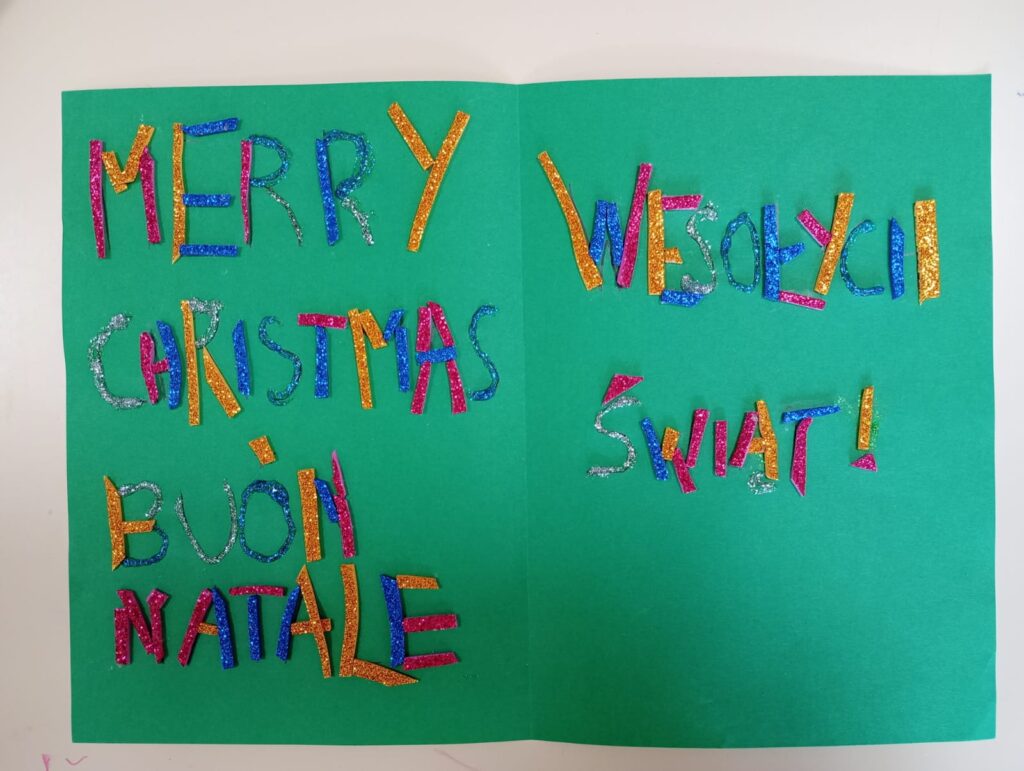 MERRY
CHRISTMAS
BUÒN
NATALE
WESOŁYCH
ŚWIĄT!